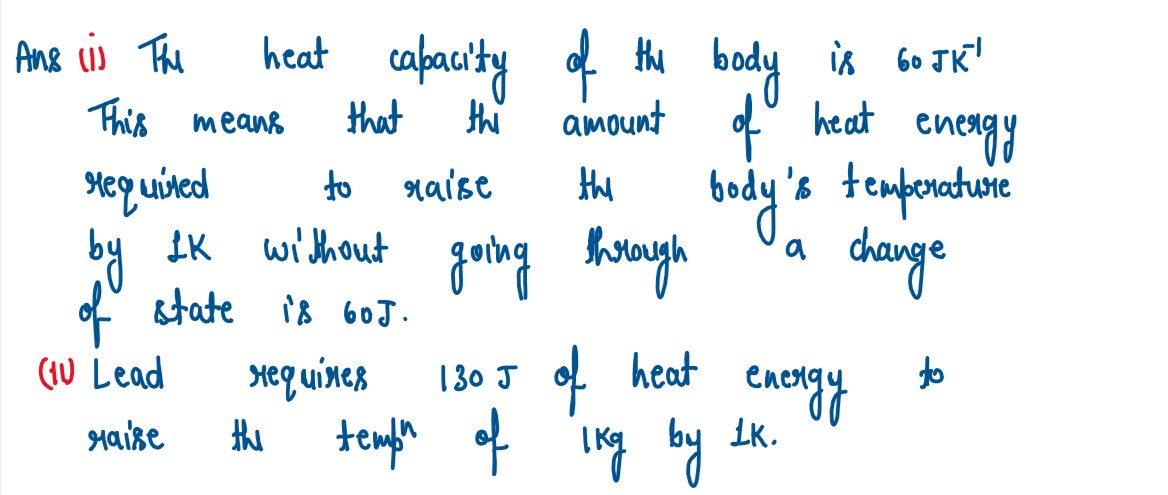 Ans (i) The heat capacity of the body is 60 JK⁻¹
This means that the amount of heat energy
required to raise the body's temperature
by 1K without going through a change
of state is 60J.
(ii) Lead requires 130 J of heat energy to
raise the tempⁿ of 1Kg by 1K.